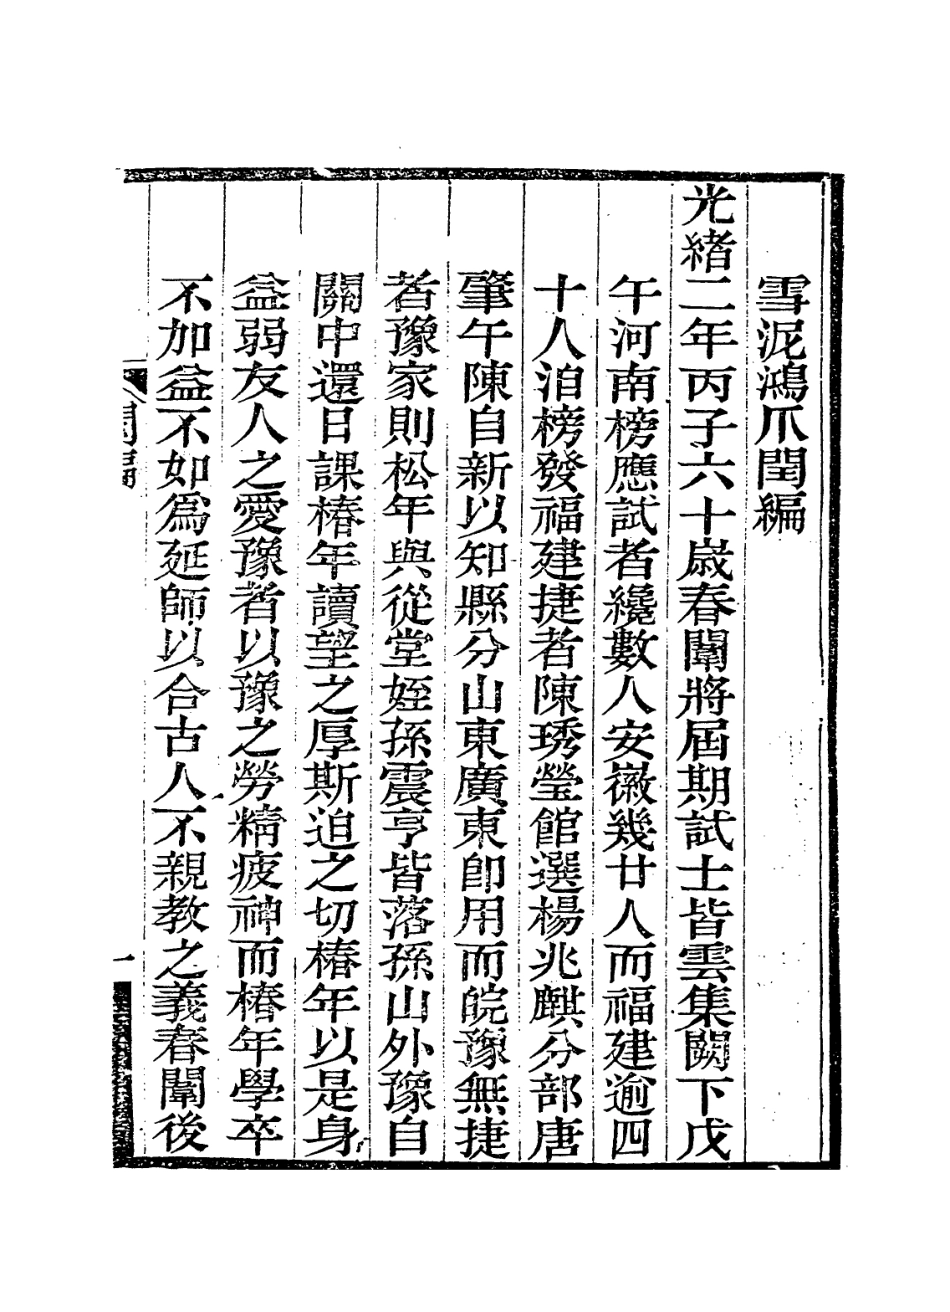 雪泥鴻爪閏編
光緒二年丙子六十歲春闈將屆期試士皆雲集闕下戊
午河南榜應試者纔數人安徽幾廿人而福建逾四
十人洎榜發福建捷者陳琇瑩館選楊兆麒分部唐
肇午陳自新以知縣分山東廣東卽用而皖豫無捷
者豫家則松年與從堂姪孫震亨皆落孫山外豫自
關中還日課椿年讀望之厚斯迫之切椿年以是身
益弱友人之愛豫者以豫之勞精疲神而椿年學卒
不加益不如爲延師以合古人不親教之義春闈後
閏編
一